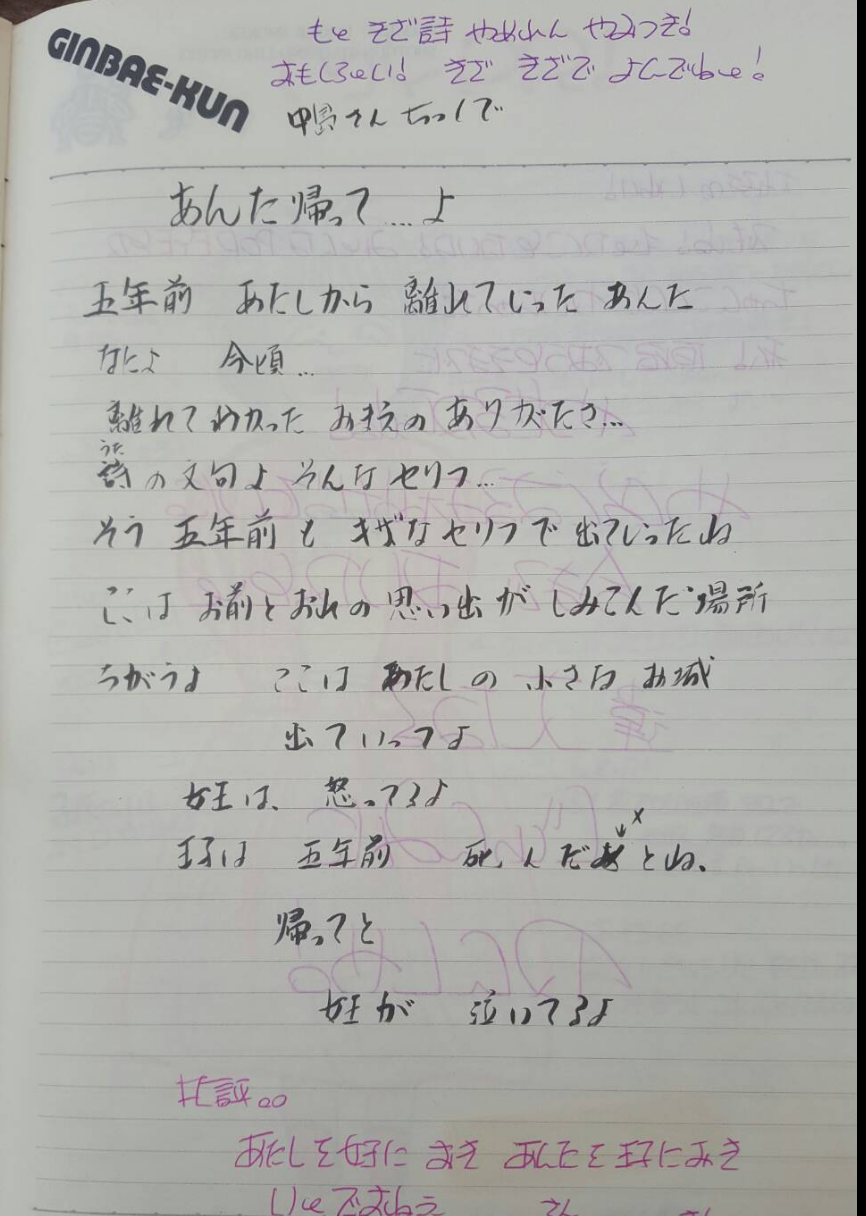 GINBAE-KUN
もぅ きざ詩 やめれん やみつき!
おもしろぃし! きざ きざで よんでねぇ!
さん ちっくで
あんた帰って…よ
五年前 あたしから 離れていった あんた
なによ 今頃…
離れて わかった おまえの ありがたさ…
うた
詩の文句よ そんな セリフ…
そう 五年前も キザな セリフで 出ていったね
ここは お前とおれの 思い出が しみこんだ 場所
ちがうよ ここは あたしの 小さな お城
出ていってよ
女王は、怒ってるよ
王子は 五年前 死んだ とね、
帰ってと
女王が 泣いてるよ
批評。。
あたしを 女王に おき あんたを 王子に おき